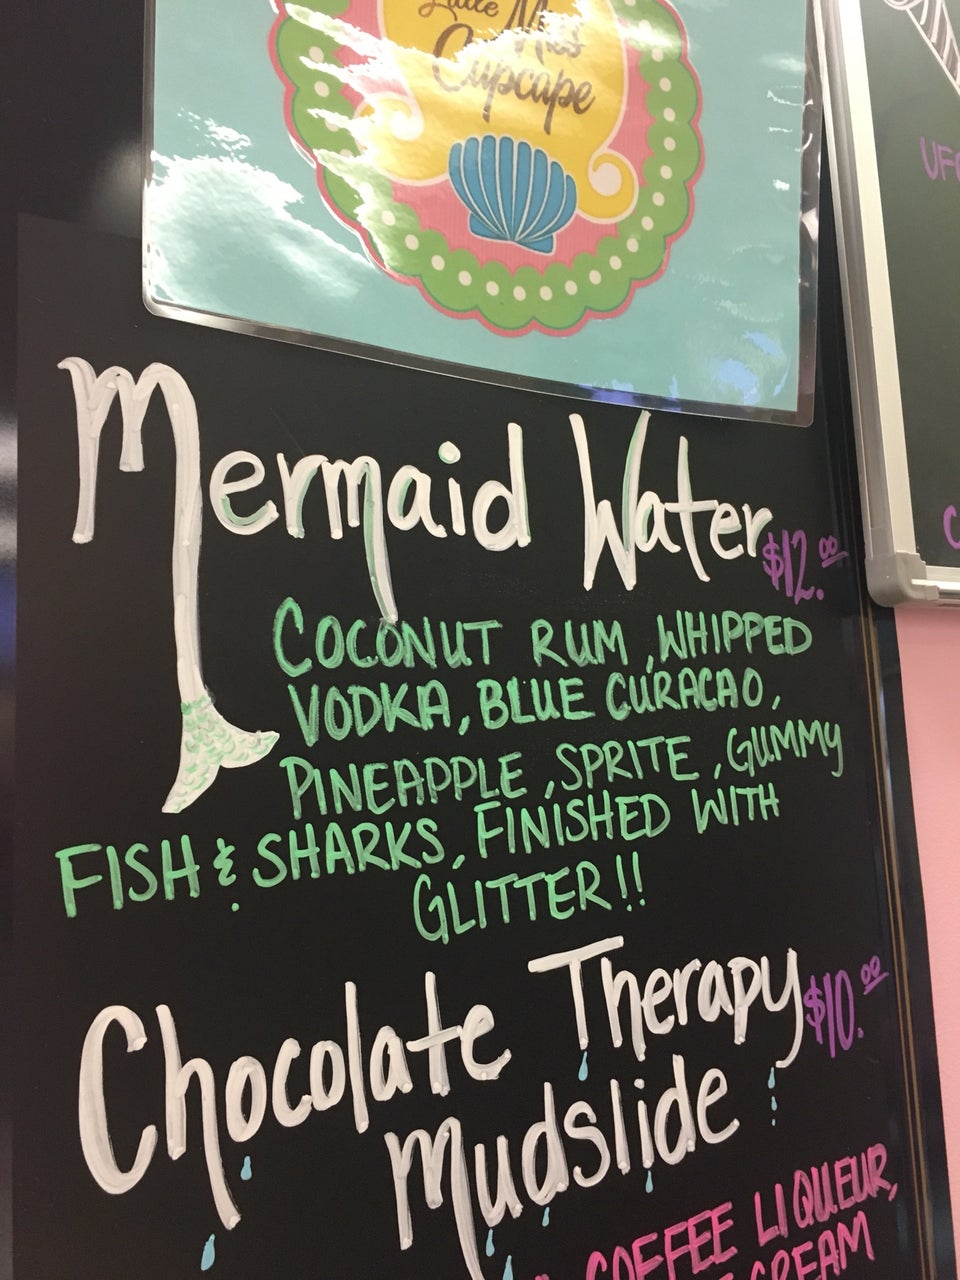 Little Miss
Cupcape
Mermaid Water
$12.00
COCONUT RUM, WHIPPED
VODKA, BLUE CURACAO,
PINEAPPLE, SPRITE, GUMMY
FISH & SHARKS, FINISHED WITH
GLITTER!!
Chocolate Therapy
$10.00
Mudslide
COFFEE LIQUEUR,
CREAM